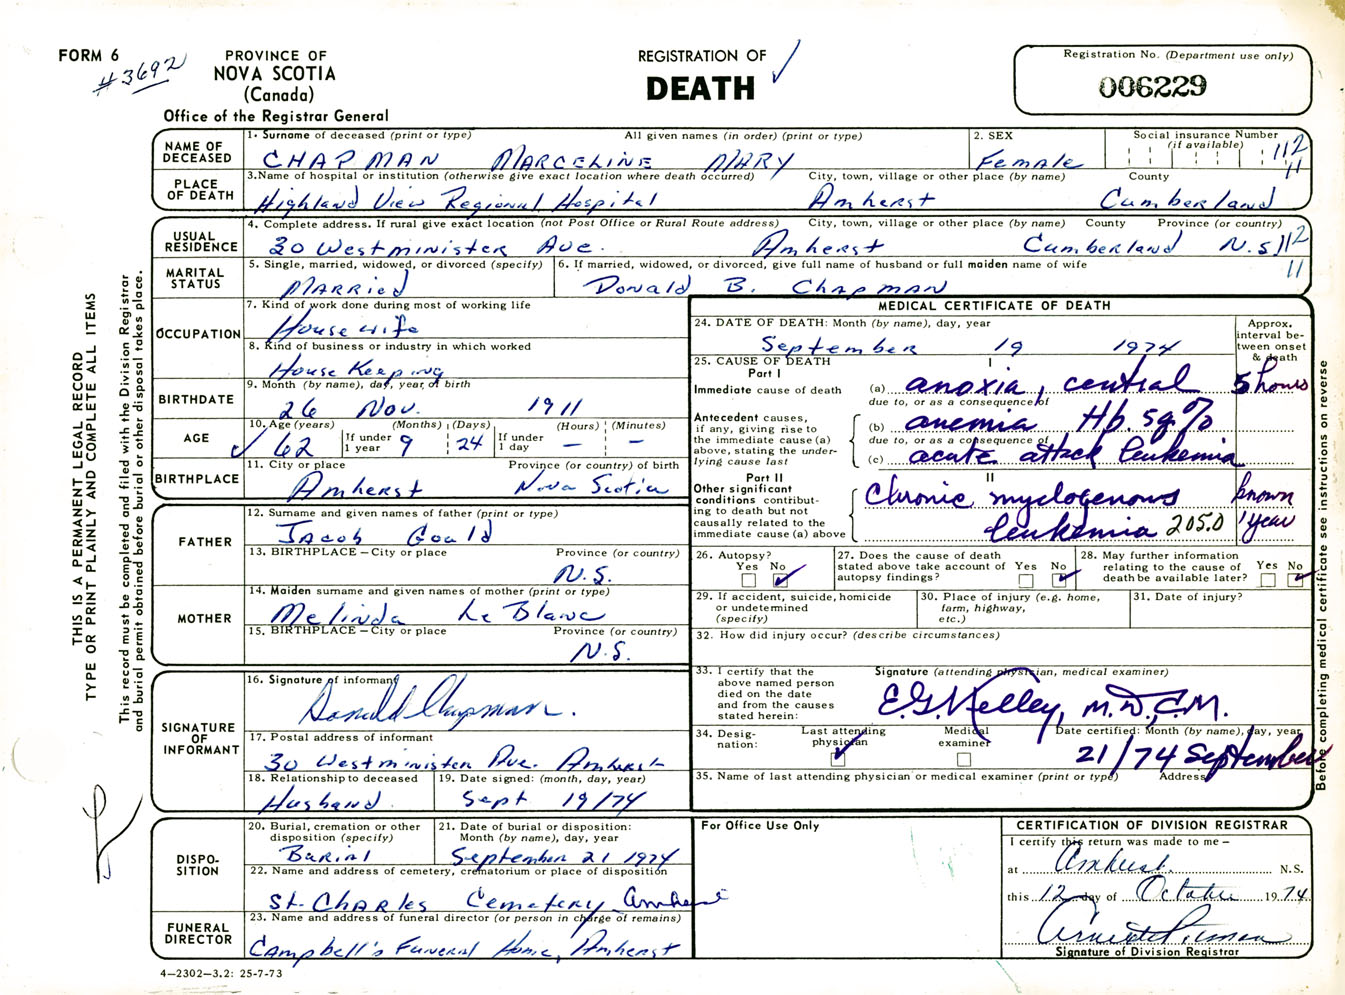 FORM 6
#3692
PROVINCE OF
NOVA SCOTIA
(Canada)
Office of the Registrar General
REGISTRATION OF
DEATH
Registration No. (Department use only)
006229
NAME OF DECEASED
1. Surname of deceased (print or type) All given names (in order) (print or type)
CHAPMAN MARCELINE MARY
2. SEX
Female
Social insurance Number
(if available)
112
11
PLACE OF DEATH
3. Name of hospital or institution (otherwise give exact location where death occurred) City, town, village or other place (by name) County
Highland View Regional Hospital Amherst Cumberland
USUAL RESIDENCE
4. Complete address. If rural give exact location (not Post Office or Rural Route address) City, town, village or other place (by name) County Province (or country)
30 Westminister Ave. Amherst Cumberland N.S 112
11
MARITAL STATUS
5. Single, married, widowed, or divorced (specify)
Married
6. If married, widowed, or divorced, give full name of husband or full maiden name of wife
Donald B. Chapman
OCCUPATION
7. Kind of work done during most of working life
House wife
8. Kind of business or industry in which worked
House Keeping
BIRTHDATE
9. Month (by name), day, year of birth
26 Nov. 1911
AGE
10. Age (years) (Months) (Days) (Hours) (Minutes)
62 If under 1 year 9 24 If under 1 day — —
BIRTHPLACE
11. City or place Province (or country) of birth
Amherst Nova Scotia
FATHER
12. Surname and given names of father (print or type)
Jacob Gould
13. BIRTHPLACE – City or place Province (or country)
N.S.
MOTHER
14. Maiden surname and given names of mother (print or type)
Melinda Le Blanc
15. BIRTHPLACE – City or place Province (or country)
N.S.
SIGNATURE OF INFORMANT
16. Signature of informant
Donald Chapman.
17. Postal address of informant
30 Westminister Ave. Amherst
18. Relationship to deceased
Husband
19. Date signed: (month, day, year)
Sept 19/74
DISPO-
SITION
20. Burial, cremation or other
disposition (specify)
Burial
21. Date of burial or disposition:
Month (by name), day, year
September 21 1974
22. Name and address of cemetery, crematorium or place of disposition
St. Charles Cemetery Amherst
FUNERAL DIRECTOR
23. Name and address of funeral director (or person in charge of remains)
Campbell's Funeral Home, Amherst
4–2302–3.2: 25-7-73
MEDICAL CERTIFICATE OF DEATH
24. DATE OF DEATH: Month (by name), day, year
September 19 1974
Approx. interval be-
tween onset
& death
25. CAUSE OF DEATH
Part I
I
Immediate cause of death
(a) anoxia, central 5 hours
due to, or as a consequence of
Antecedent causes,
if any, giving rise to
the immediate cause (a)
above, stating the under-
lying cause last
(b) anemia Hb. 5g%
due to, or as a consequence of
(c) acute attack leukemia
Part II
II
Other significant
conditions contribut-
ing to death but not
causally related to the
immediate cause (a) above
Chronic myelogenous known
leukemia 205.0 1 year
26. Autopsy?
Yes No
27. Does the cause of death
stated above take account of
autopsy findings?
Yes No
28. May further information
relating to the cause of
death be available later?
Yes No
29. If accident, suicide, homicide
or undetermined
(specify)
30. Place of injury (e.g. home,
farm, highway,
etc.)
31. Date of injury?
32. How did injury occur? (describe circumstances)
33. I certify that the
above named person
died on the date
and from the causes
stated herein:
Signature (attending physician, medical examiner)
E.G. Kelley, M.D., C.M.
34. Desig-
nation:
Last attending
physician
Medical
examiner
Date certified: Month (by name), day, year
21/74 September
35. Name of last attending physician or medical examiner (print or type) Address
For Office Use Only
CERTIFICATION OF DIVISION REGISTRAR
I certify this return was made to me –
at Amherst N.S.
this 12 day of October 1974
Signature of Division Registrar
THIS IS A PERMANENT LEGAL RECORD
TYPE OR PRINT PLAINLY AND COMPLETE ALL ITEMS
This record must be completed and filed with the Division Registrar
and burial permit obtained before burial or other disposal takes place.
Before completing medical certificate see instructions on reverse